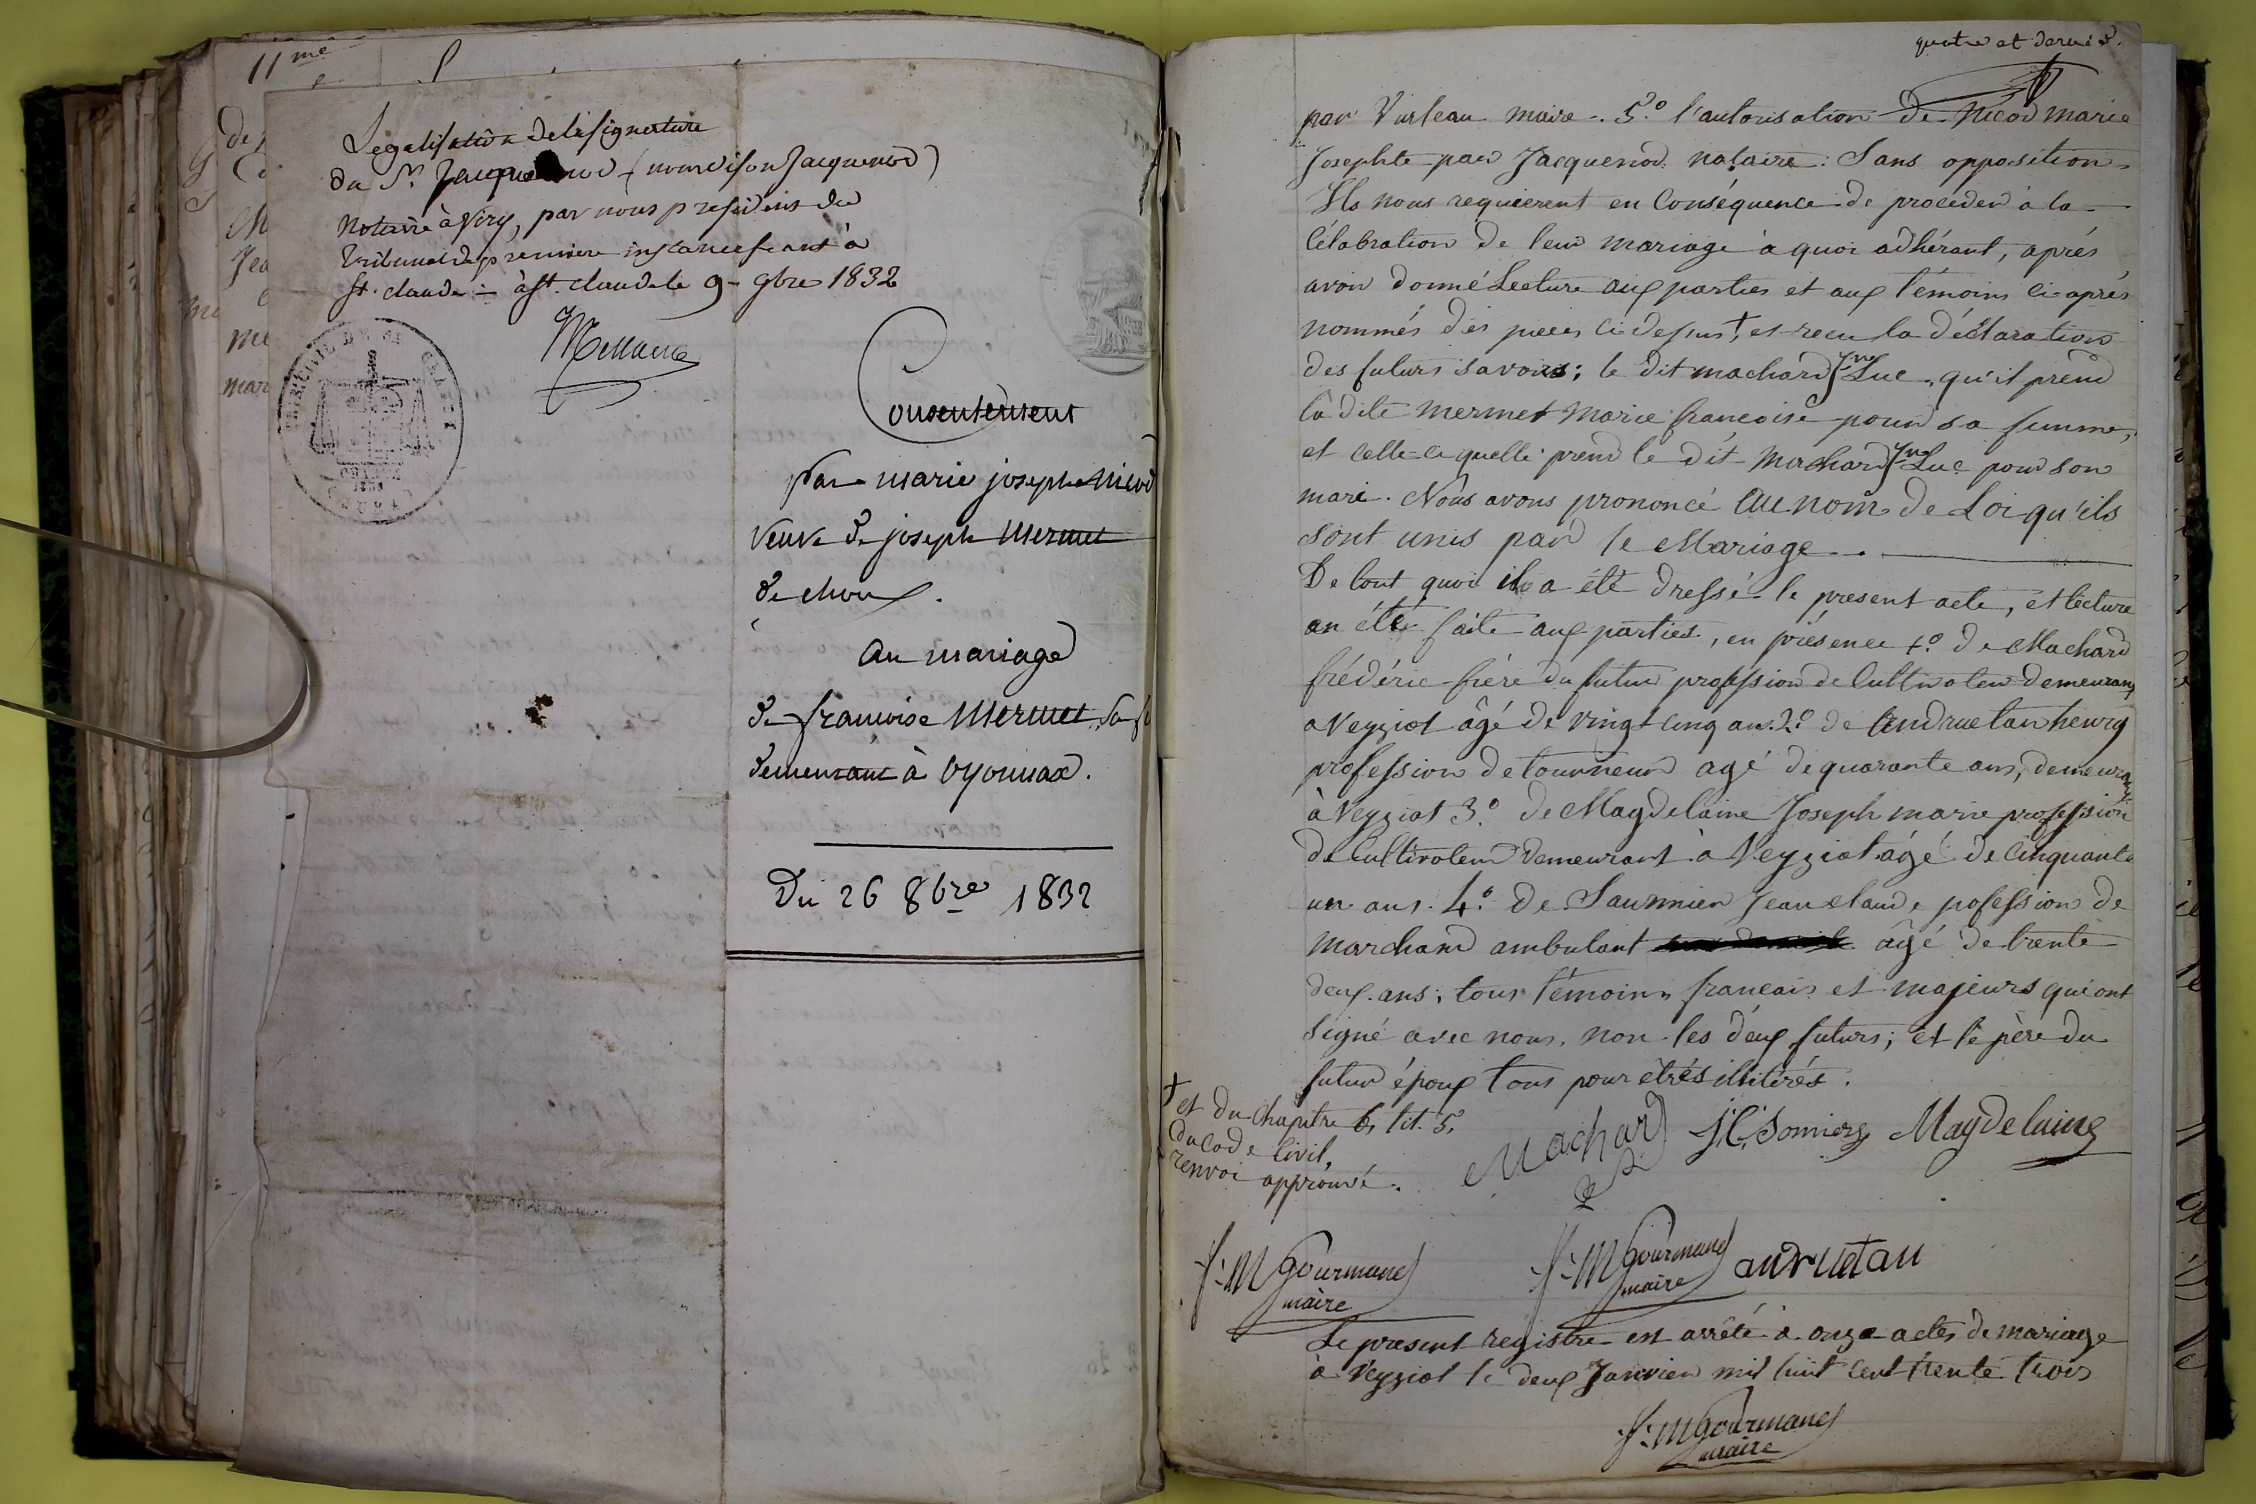 11me
Legalisation de la signature
du Sr. Jacquenod (nous disons Jacquenod)
Notaire à Viry, par nous president du
tribunal de premiere instance seant à
st. claude - à st. claude le 9 - 9bre 1832
Consentement
par marie josephe Nicod
veuve de joseph Mermet
de choux.
au mariage
de francoise Mermet, sa f
demeurant à Oyonnax.
Du 26 8bre 1832
quatre et dernier.
par Vurleau maire. 5.º l'autorisation de Nicod marie
Josephte par Jacquenod notaire: Sans opposition,
Ils nous requierent en Conséquence de proceder à la
Célébration de leur mariage à quoi adhérant, aprés
avoir donné Lecture aux parties et aux témoins ci-aprés
nommés des pieces ci dessus † et recu la déclaration
des futurs savoir; le dit machard Jne Luc, qu'il prend
la dite mermet Marie francoise pour sa femme,
et celle-ci quelle prend le dit Machard Jne Luc pour son
mari. Nous avons prononcé au nom de Loi qu'ils
sont unis par le Mariage.
De tout quoi il a été dressé le present acte, et lecture
an été faite aux parties, en présence 1.º de Machard
frédéric frére du futur profession de Cultivateur demeurant
a Veyziat âgé de vingt cinq ans. 2.º de andruetan henry
profession de tourneur agé de quarante ans, demeurant
à Veyziat 3.º de Magdelaine Joseph marie profession
de Cultivateur demeurant à Veyziat âgé de cinquante
un ans. 4.º de Saunnier Jean claude pofession de
marchand ambulant âgé de trente
deux ans; tous témoins francais et majeurs qui ont
signé avec nous, non les deux futurs; et le père du
futur époux tous pour etrés illitérés.
† et du chapitre 6, tit. 5,
du Code Civil,
renvoi approuvé.
Machard J. C. Sonnierz Magdelaine
f: M Gourmand
maire
f: M Gourmand
maire
andruetan
Le present régistre est arrêté à onze actes de mariage
à Veyziat le deux Janvier mil huit cent trente trois
f: M Gourmand
maire